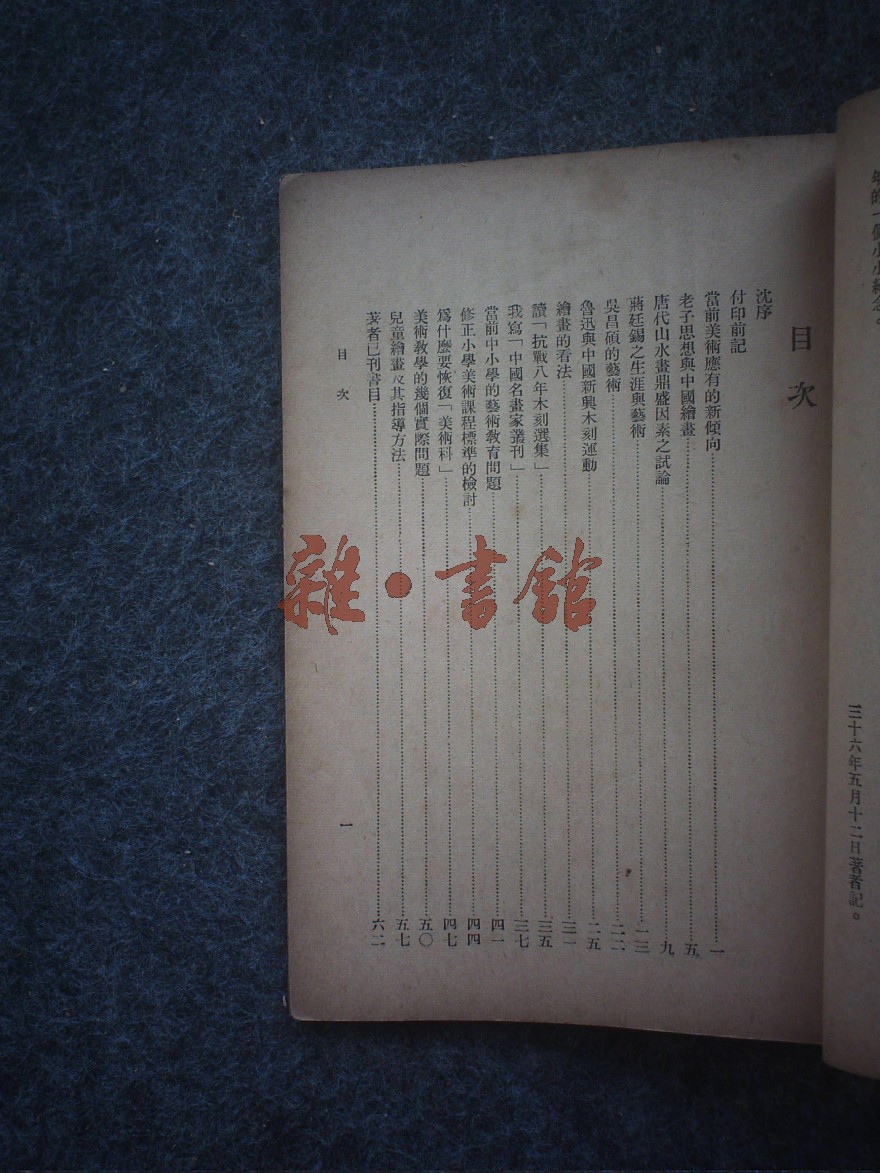 年的一個小小紀念。
三十六年五月十二日著者記。
目次
沈序
付印前記
當前美術應有的新傾向……一
老子思想與中國繪畫……五
唐代山水畫鼎盛因素之試論……九
蔣廷錫之生涯與藝術……一三
吳昌碩的藝術……二二
魯迅與中國新興木刻運動……二五
繪畫的看法……三一
讀「抗戰八年木刻選集」……三五
我寫「中國名畫家叢刊」……三七
當前中小學的藝術教育問題……四一
修正小學美術課程標準的檢討……四四
爲什麼要恢復「美術科」……四七
美術教學的幾個實際問題……五〇
兒童繪畫及其指導方法……五七
著者已刊書目……六二
目次
一
雜·書館